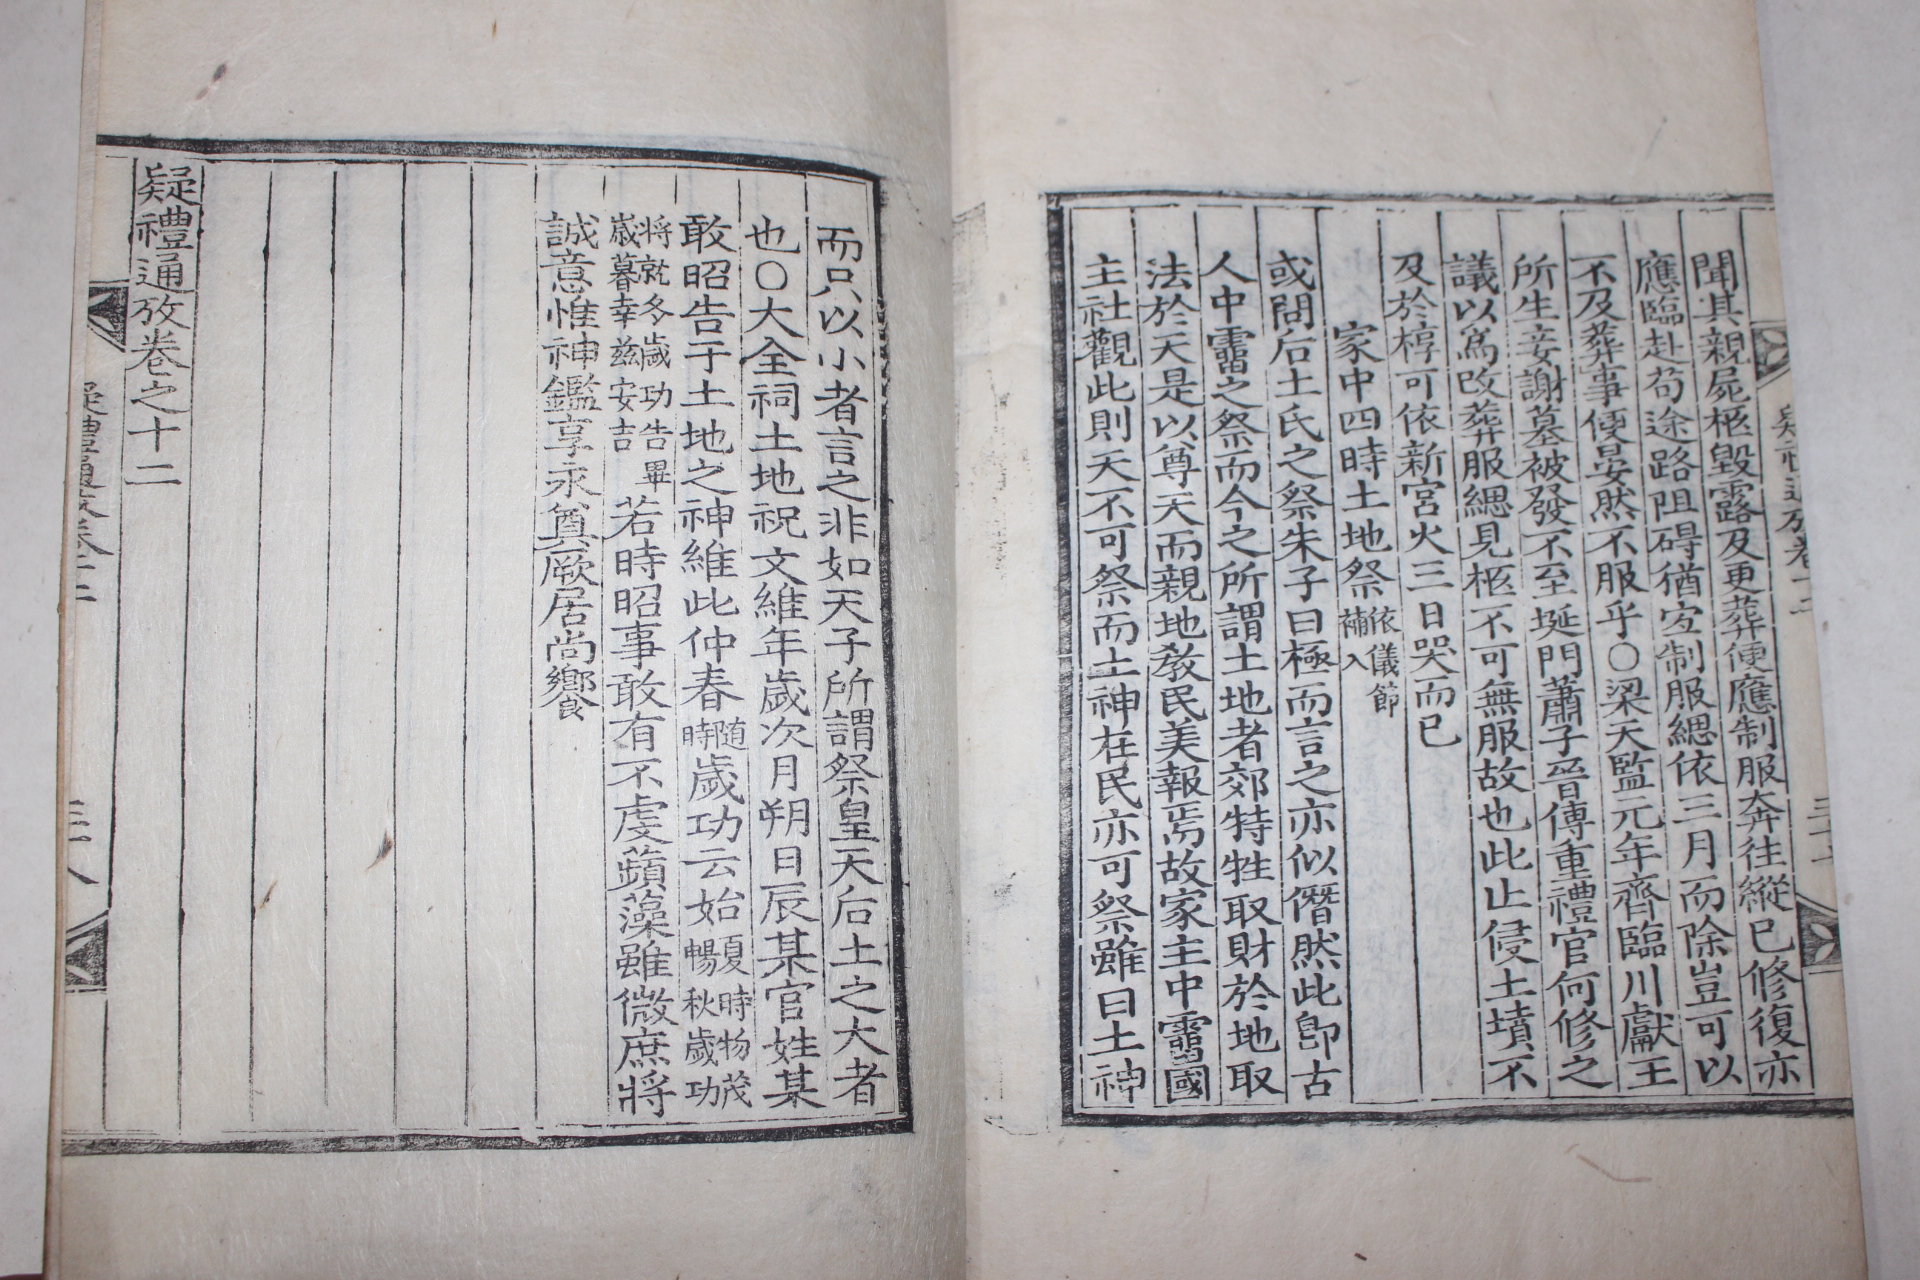 聞其親屍柩毀露及更葬便應制服奔往縱已修復亦
應臨赴苟途路阻碍猶宜制服緦依三月而除豈可以
不及葬事便晏然不服乎○梁天監元年齊臨川獻王
所生妾謝墓被發不至埏門蕭子晉傳重禮官何修之
議以爲改葬服緦見柩不可無服故也此止侵土墳不
及於椁可依新宮火三日哭而已
家中四時土地祭依儀節補入
或問后土氏之祭朱子曰極而言之亦似僭然此卽古
人中霤之祭而今之所謂土地者郊特牲取財於地取
法於天是以尊天而親地敎民美報焉故家主中霤國
主社觀此則天不可祭而土神在民亦可祭雖曰土神
而只以小者言之非如天子所謂祭皇天后土之大者
也○大全祠土地祝文維年歲次月朔日辰某官姓某
敢昭告于土地之神維此仲春隨時歲功云始夏時物茂暢秋歲功
將就冬歲功告畢歲暮幸玆安吉若時昭事敢有不虔蘋藻雖微庶將
誠意惟神鑑享永奠厥居尙饗
疑禮通攷卷之十二
疑禮通攷卷十二
三十八